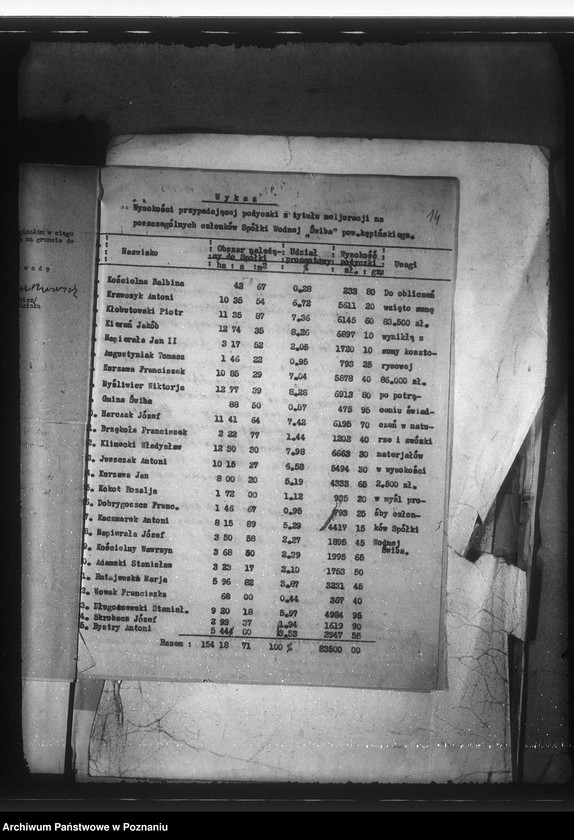 14
Wykaz
Wysokości przypadającej pożyczki z tytułu meljoracji na
poszczególnych członków Spółki Wodnej „Świba" pow.kępińskiego.
Nazwisko : Obszar należą- : Udział : Wysokość : Uwagi
cy do Spółki procentowy pożyczki
ha : a : m2 % zł. : gr.
Kościelna Balbina 42 67 0.28 233 80 Do obliczeń
Krawczyk Antoni 10 35 54 6.72 5611 20 wzięto sumę
Kłobutowski Piotr 11 35 87 7.36 6145 60 83.500 zł.
Kieruń Jakób 12 74 35 8.26 6897 10 wynikłą z
Napierała Jan II 3 17 52 2.05 1720 10 sumy koszto-
Augustyniak Tomasz 1 46 22 0.95 793 25 rysowej
Kurzawa Franciszek 10 85 29 7.04 5878 40 86.000 zł.
Myśliwier Wiktorja 12 77 39 8.28 6913 80 po potrą-
Gmina Świba 88 50 0.57 475 95 ceniu świad-
Marczak Józef 11 41 64 7.42 6195 70 czeń w natu-
1. Brząkoła Franciszek 2 22 77 1.44 1202 40 rze i zwózki
2. Klinecki Władysław 12 30 30 7.98 6663 30 materjałów
3. Juszczak Antoni 10 15 27 6.58 5494 30 w wysokości
4. Kurzawa Jan 8 00 20 5.19 4333 65 2.500 zł.
5. Kokot Rozalja 1 72 00 1.12 935 20 w myśl pro-
6. Dobrygoszcz Franc. 1 46 67 0.95 793 25 śby człon-
7. Kaczmarek Antoni 8 15 89 5.29 4417 15 ków Spółki
8. Napierała Józef 3 50 58 2.27 1895 45 Wodnej
9. Kościelny Wawrzyn 3 68 50 2.39 1995 65 Świba.
0. Adamski Stanisław 3 23 17 2.10 1753 50
1. Ratajewska Marja 5 96 82 3.87 3231 45
2. Nowak Franciszka 68 00 0.44 367 40
3. Długoszewski Stanisł. 9 20 18 5.97 4984 95
4. Skrobacz Józef 2 99 37 1.94 1619 90
5. Bystry Antoni 5 44 00 3.53 2947 55
Razem : 154 18 71 100 % 83500 00
Archiwum Państwowe w Poznaniu